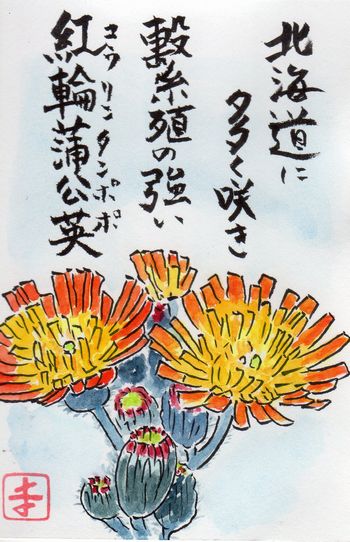 北海道に
多く咲き
繋糸殖の強い
紅輪蒲公英
コウリンタンポポ